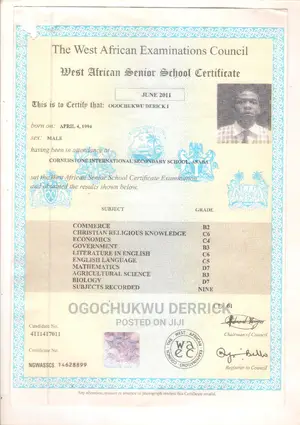 The West African Examinations Council
West African Senior School Certificate
JUNE 2011
This is to Certify that: OGOCHUKWU DERICK I
born on: APRIL 4, 1994
sex: MALE
having been in attendance at
CORNERSTONE INTERNATIONAL SECONDARY SCHOOL,
sat the West African Senior School Certificate Examination
and obtained the results shown below.
SUBJECT GRADE
COMMERCE B2
CHRISTIAN RELIGIOUS KNOWLEDGE C6
ECONOMICS C4
GOVERNMENT B3
LITERATURE IN ENGLISH C6
ENGLISH LANGUAGE C5
MATHEMATICS D7
AGRICULTURAL SCIENCE B3
BIOLOGY D7
SUBJECTS RECORDED NINE
OGOCHUKWU DERRICK
POSTED ON JIJI
Candidate No.
4111417011
Chairman of Council
Certificate No.
NGWASSCS 14628899
waec
Registrar to Council
Any alteration, erasure or